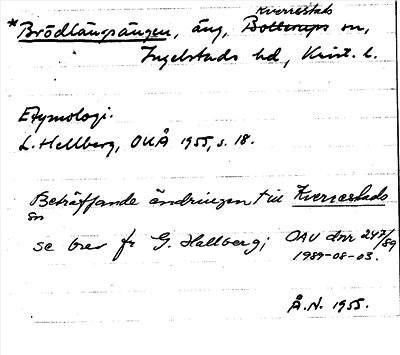 Kverrestads
*Brödlängsängen, äng, Bollerups sn,
Ingelstads hd, Krist. l.
Etymologi.
L. Hellberg, OUÅ 1955, s. 18.
Beträffande ändringen till Kverrestads
sn
se brev fr G. Hallberg; OAU dnr 247/89
1989-08-03.
Å.N. 1955.